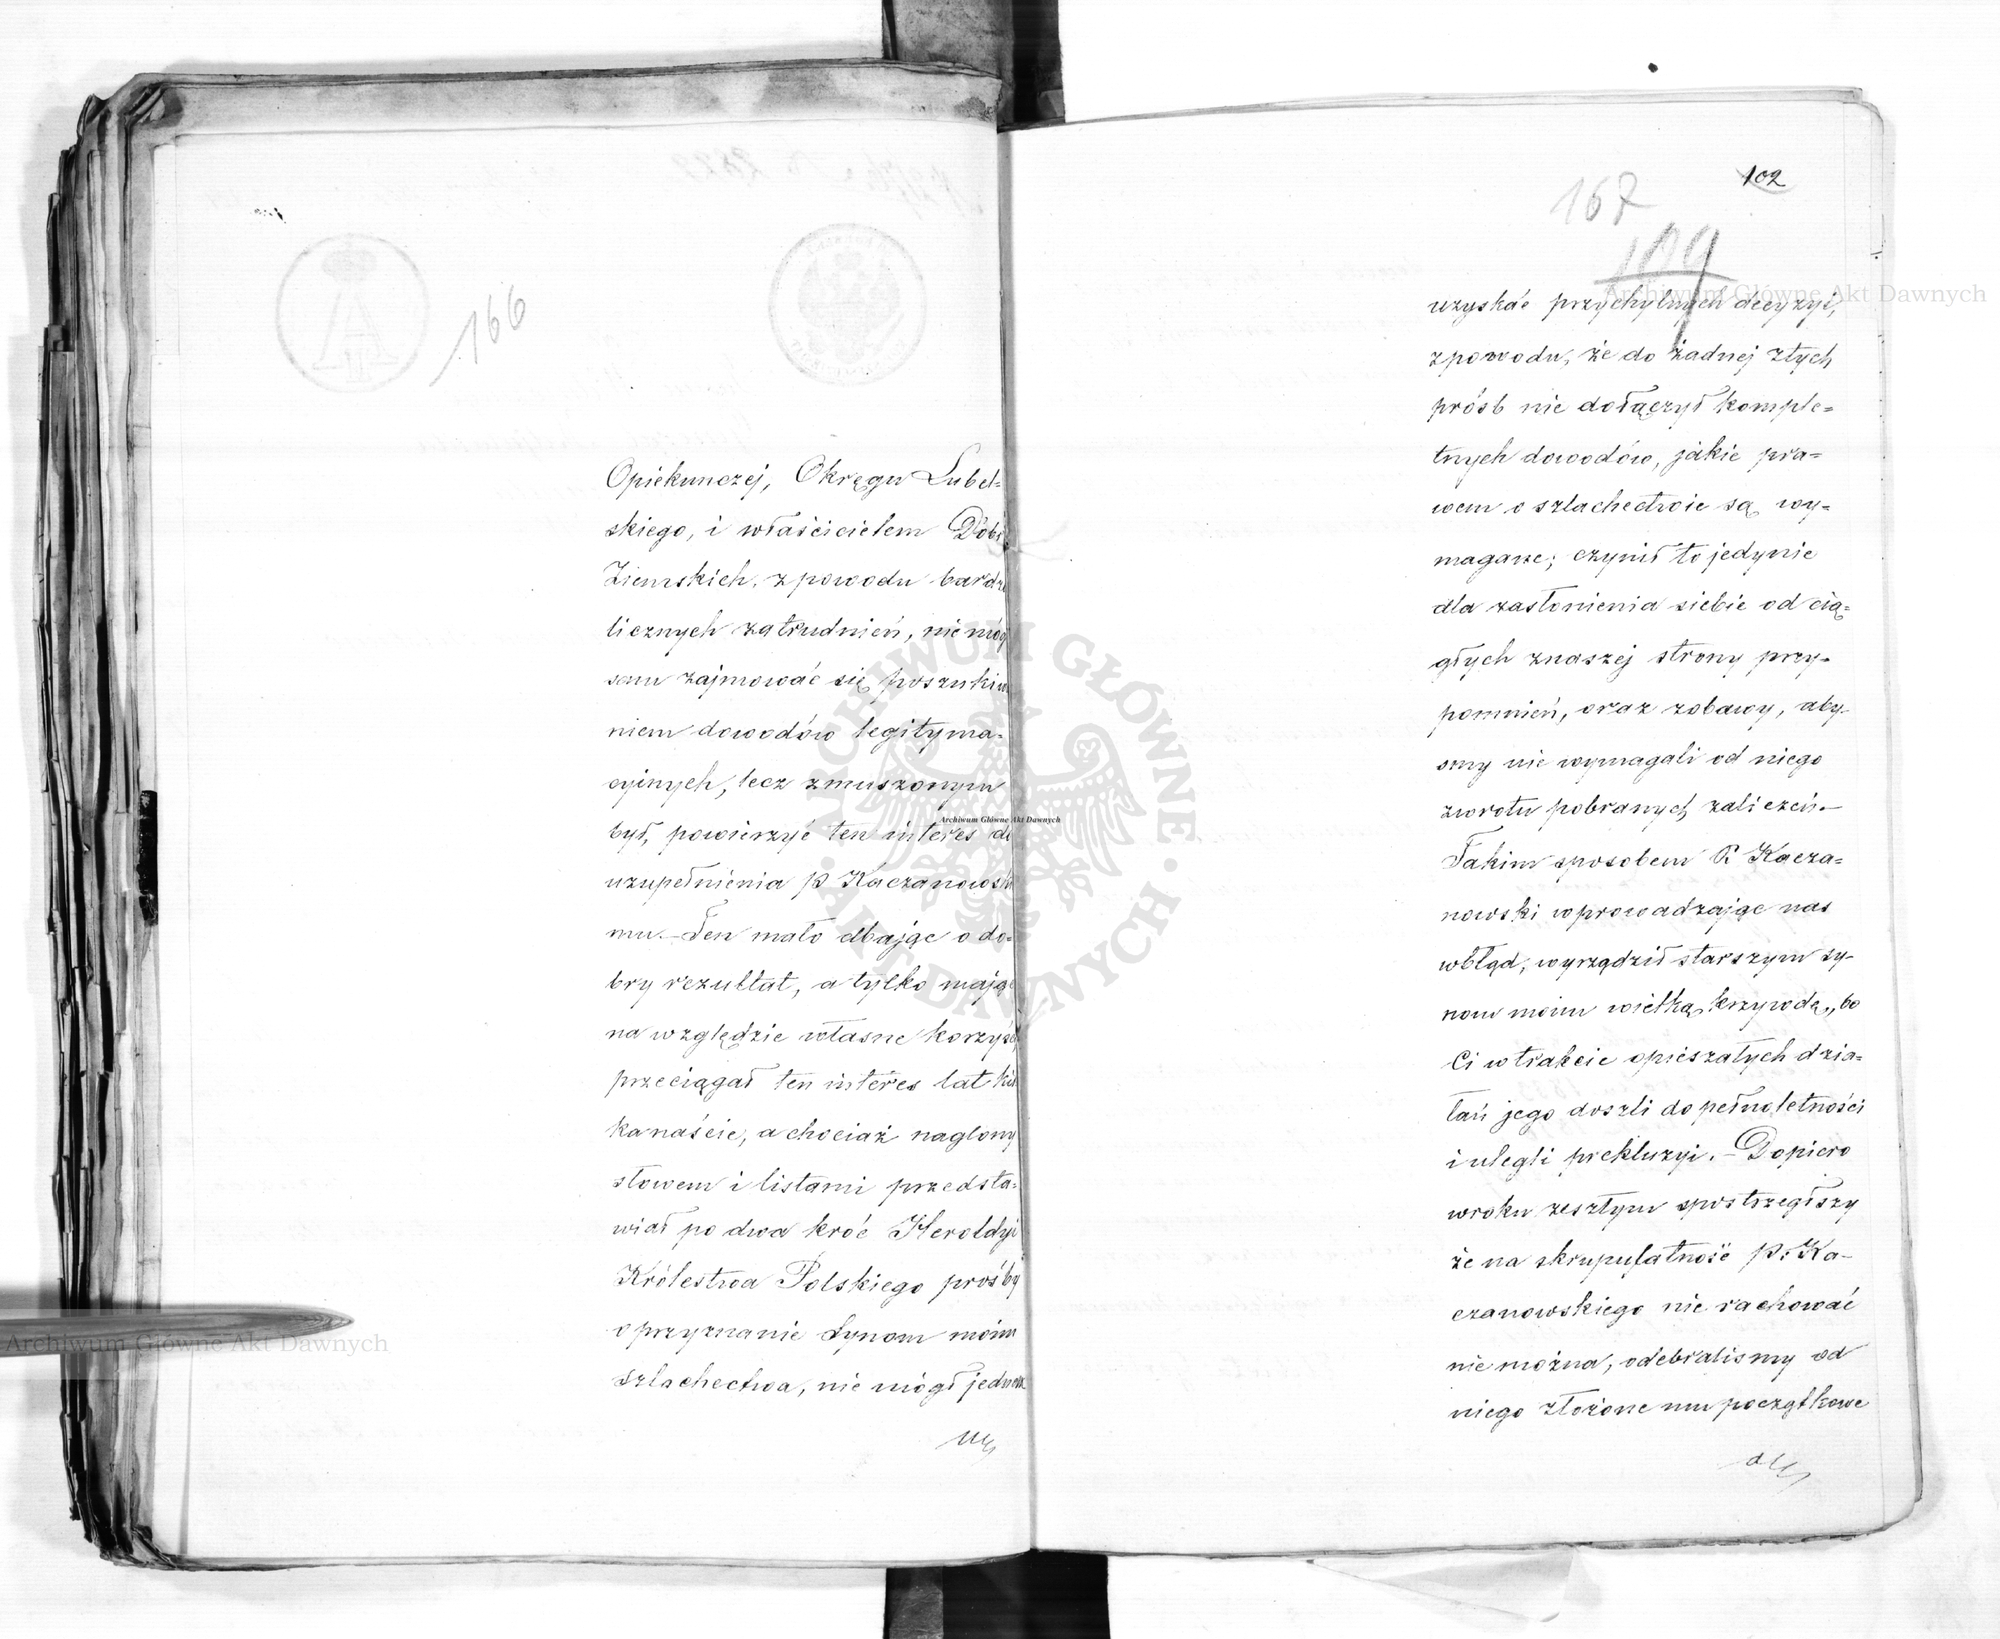 166
Opiekunczej, Okręgu Lubel=
skiego, i właścicielem Dóbr
Ziemskich, z powodu bardzo
licznych zatrudnień, nie mógł
sam zajmować się poszukiwa
niem dowodów legityma=
cyinych, lecz zmuszonym
był, powierzyć ten interes do
uzupełnienia p Kaczanowski
mu.– Ten mało dbając o do=
bry rezultat, a tylko mając
na względzie własne korzyści
przeciągał ten interes lat kil
kanaście, a chociaż naglony
słowem i listami przedsta=
wiał po dwa kroć Heroldyi
Królestwa Polskiego prośby
o przyznanie Synom moim
szlachectwa, nie mógł jednak
uzy
102
167
109
uzyskać przychylnych decyzyi,
z powodu, że do żadnej z tych
próśb nie dołączył komple=
tnych dowodów, jakie pra=
wem o szlachectwie są wy=
magane; czynił to jedynie
dla zasłonienia siebie od cią=
głych znaszej strony przy=
pomnień, oraz zobawy, aby
smy nie wymagali od niego
zwrotu pobranych zaliczeń.–
Takim sposobem P. Kacza=
nowski wprowadzając nas
wbłąd, wyrządził starszym sy=
nom moim wielką krzywdę, bo
Ci w trakcie opieszałych dzia=
łań jego doszli do pełnoletności
i ulegli prekluzyi.– Dopiero
wroku zesztym spostrzegłszy
że na skrupulatność P. Ka=
czanowskiego nie rachować
nie można, odebralismy od
niego złożone mu początkowe
Archiwum Główne Akt Dawnych
Archiwum Główne Akt Dawnych
Archiwum Główne Akt Dawnych
ARCHIWUM GŁÓWNE · AKT DAWNYCH ·